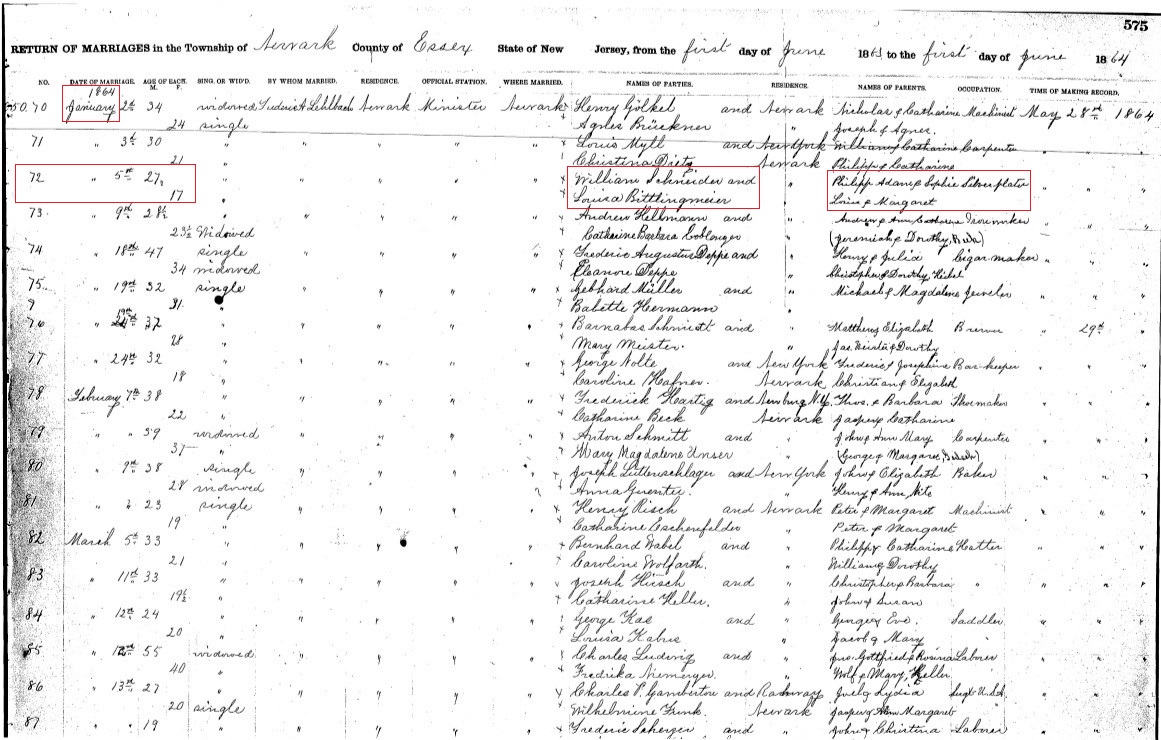 575
RETURN OF MARRIAGES in the Township of Newark County of Essex State of New Jersey, from the first day of June 1863 to the first day of June 1864
NO. DATE OF MARRIAGE. AGE OF EACH. SING. OR WID'D. BY WHOM MARRIED. RESIDENCE. OFFICIAL STATION. WHERE MARRIED. NAMES OF PARTIES. RESIDENCE. NAMES OF PARENTS. OCCUPATION. TIME OF MAKING RECORD.
M. F.
1864
70 January 2d 34 widowed Newark Minister Newark Henry Gölkel and Newark Nicholas & Catharine Machinist May 28th 1864
24 single Agnes Brückner " Joseph & Agnes.
71 " 3d 30 " " " " " Louis Myll and New York William & Catharine Carpenter " " "
21 " Christina Dietz Newark Philipp & Catharine
72 " 5th 27 " " " " " William Schneider and " Philipp Adam & Sophie Silverplater " " "
17 " Louisa Bittlingmeier Louis & Margaret
73 " 9th 28½ " " " " " Andrew Hellmann and " Andrew & Ann Catharine " " "
23½ Widowed Catharine Barbara (Jeremiah & Dorothy,
74 " 18th 47 single " " " " Frederic Augustus Deppe and " Henry & Julia Cigar maker " " "
34 widowed Eleanore Deppe " Christopher & Dorothy
75 " 19th 32 single " " " " Gebhard Müller and " Michael & Magdalene Jeweler " " "
9 31 " Babette Hermann "
76 " 37 " " " " " Barnabas Schmitt and " Matthew & Elizabeth Brewer " 29th "
28 " Mary Meister. " & Dorothy
77 " 24th 32 " " " " " George Nolte and New York Frederic & Josephine Bar-keeper " " "
18 " Caroline Hafner. Newark Christian & Elizabeth
78 February 7th 38 " " " " " Frederick Hartig and Newburg N.Y. Thos. & Barbara Shoemaker " " "
22 " Catharine Beck Newark Jasper & Catharine
79 " " 39 widowed " " " " Anton Schmitt and " John & Ann Mary Carpenter " " "
37 " Mary Magdalene Unser " (George & Margaret,
80 " 9th 38 single " " " " Joseph Luttenschlager and New York John & Elizabeth Baker " " "
28 widowed Anna Guenter. " Henry & Ann
81 " " 23 single " " " " Henry Risch and Newark Peter & Margaret Machinist " " "
19 " Catharine Eschenfelder " Peter & Margaret
82 March 5th 33 " " " " " Bernhard Wabel and " Philipp & Catharine Hatter " " "
21 " Caroline Wolfarth. " William & Dorothy
83 " 11th 33 " " " " " Joseph Hirsch and " Christopher & Barbara " " " "
19½ " Catharine Heller. " John & Susan
84 " 12th 24 " " " " " George Kae and " George & Eve. Saddler " " "
20 " Louisa Kabus " Jacob & Mary
85 " 12th 55 widowed " " " " Charles Ludwig and " Gottfried & Rosina Laborer " " "
40 " Fredrika Niemerger. " Wolf & Mary, Heller.
86 " 13th 27 " " " " " Charles P. Gamberton and Rahway Joel & Lydia U.S.A. " " "
20 single Wilhelmine Frank. Newark Jasper & Ann Margaret
87 " " 19 " " " " " Frederic Scherger and " John & Christina Laborer " " "